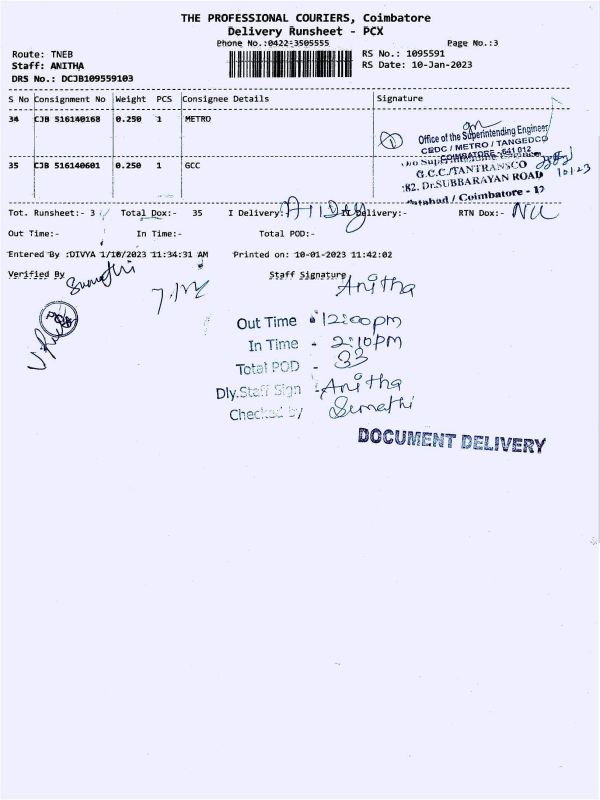 THE PROFESSIONAL COURIERS, Coimbatore
Delivery Runsheet - PCX
Phone No.:0422-3505555
Page No.:3
Route: TNEB
RS No.: 1095591
Staff: ANITHA
RS Date: 10-Jan-2023
DRS No.: DCJB109559103
S No Consignment No Weight PCS Consignee Details Signature
34 CJB 516140168 0.250 1 METRO
Office of the Superintending Engineer
CEDC / METRO / TANGEDCO
COIMBATORE-641 012
35 CJB 516140601 0.250 1 GCC
G.C.C./TANTRANSCO
:82. Dr.SUBBARAYAN ROAD
/ Coimbatore - 12
Tot. Runsheet:- 3 Total Dox:- 35 I Delivery: All Dey Delivery:- RTN Dox:- Nil
Out Time:- In Time:- Total POD:-
Entered By :DIVYA 1/10/2023 11:34:31 AM Printed on: 10-01-2023 11:42:02
Verified By Sumathi Staff Signature Anitha
Out Time - 12:00pm
In Time - 2:10pm
Total POD - 33
Dly.Staff Sign - Anitha
Checked by Sumathi
DOCUMENT DELIVERY